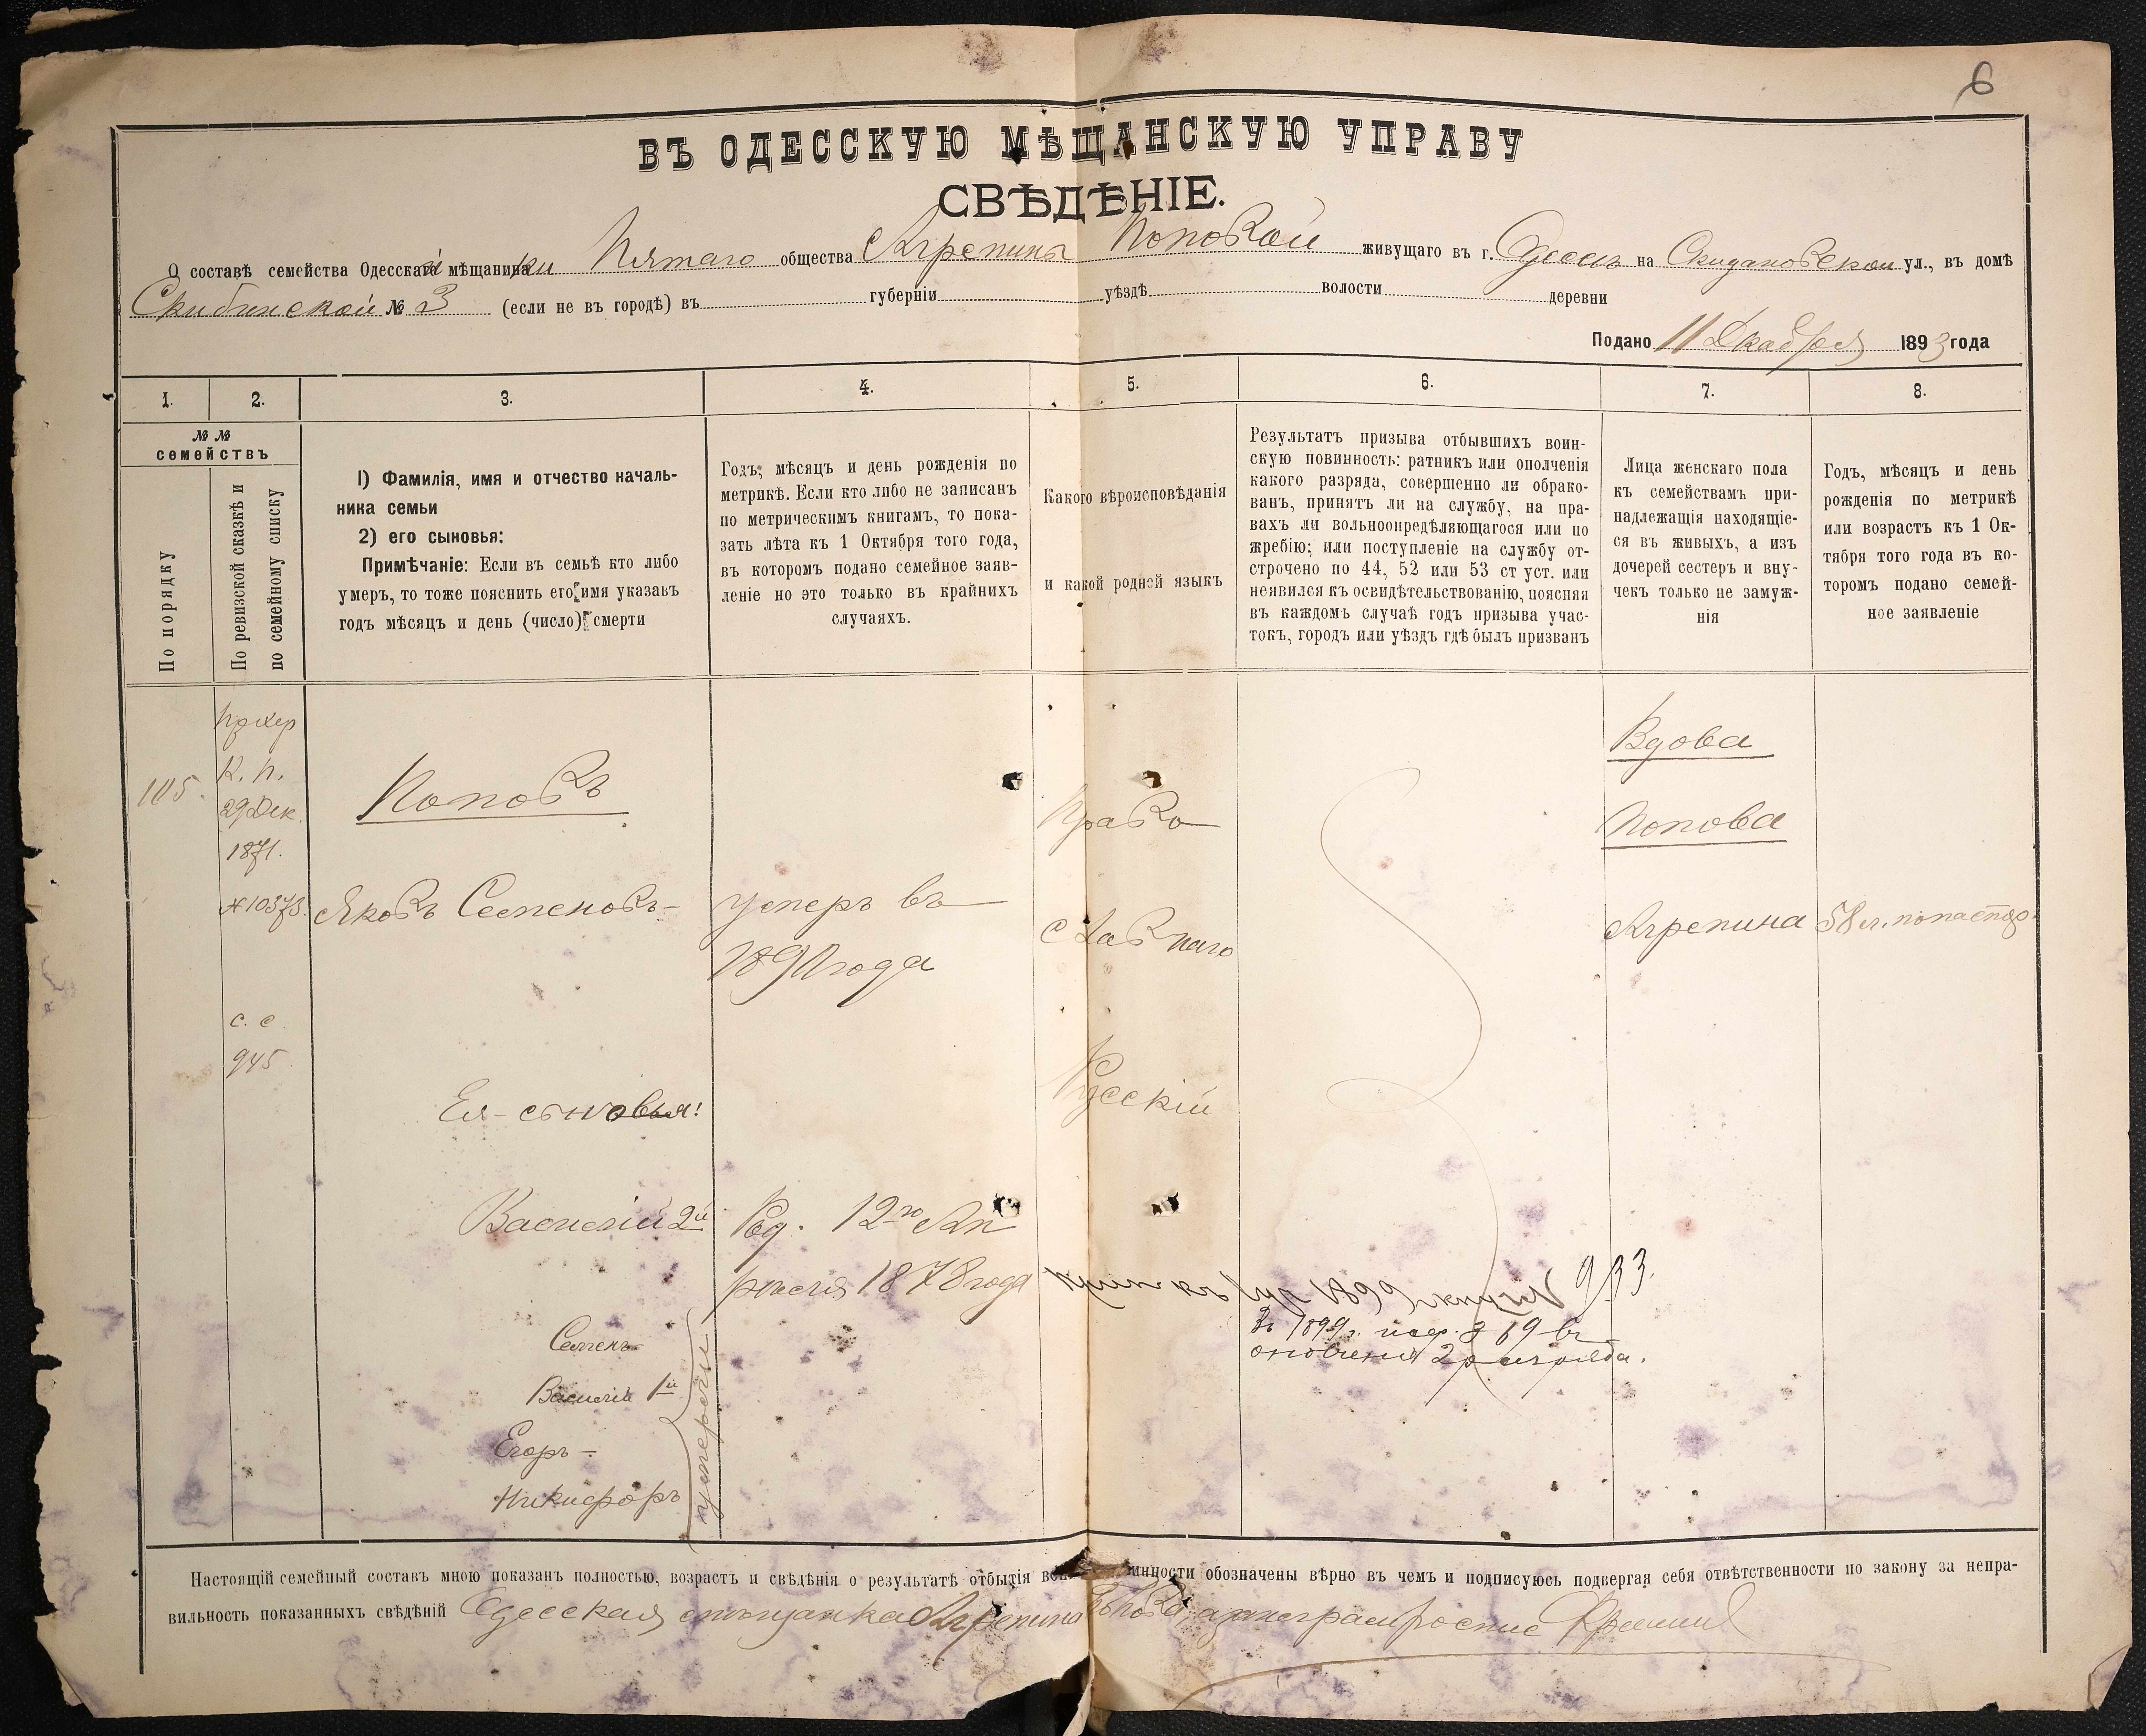 6
ВЪ ОДЕССКУЮ МѢЩАНСКУЮ УПРАВУ
СВѢДѢНІЕ.
О составѣ семейства Одесской мѣщанки Пятаго общества Агрепины Поповой живущаго въ г. Одессѣ на Скидановской ул., въ домѣ
Скибинской № 3 (если не въ городѣ) въ губерніи уѣздѣ волости деревни
Подано 11 Декабря 1893 года
1. 2. 3. 4. 5. 6. 7. 8.
№ №
семействъ
По порядку
По ревизской сказкѣ и
по семейному списку
1) Фамилія, имя и отчество началь-
ника семьи
2) его сыновья:
Примѣчаніе: Если въ семьѣ кто либо
умеръ, то тоже пояснить его имя указавъ
годъ мѣсяцъ и день (число) смерти
Годъ, мѣсяцъ и день рожденія по
метрикѣ. Если кто либо не записанъ
по метрическимъ книгамъ, то пока-
зать лѣта къ 1 Октября того года,
въ которомъ подано семейное заяв-
леніе но это только въ крайнихъ
случаяхъ.
Какого вѣроисповѣданія
и какой родной языкъ
Результатъ призыва отбывшихъ воин-
скую повинность: ратникъ или ополченія
какого разряда, совершенно ли обрако-
ванъ, принятъ ли на службу, на пра-
вахъ ли вольноопредѣляющагося или по
жребію; или поступленіе на службу от-
строчено по 44, 52 или 53 ст уст. или
неявился къ освидѣтельствованію, поясняя
въ каждомъ случаѣ годъ призыва учас-
токъ, городъ или уѣздъ гдѣ былъ призванъ
Лица женскаго пола
къ семействамъ при-
надлежащія находящіе-
ся въ живыхъ, а изъ
дочерей сестеръ и вну-
чекъ только не замуж-
нія
Годъ, мѣсяцъ и день
рожденія по метрикѣ
или возрастъ къ 1 Ок-
тября того года въ ко-
торомъ подано семей-
ное заявленіе
105.
К. п.
29 Дек.
1871.
№ 10373.
с. с.
945
Поповъ
Яковъ Семеновъ-
умеръ въ
Ея-сыновья!
Василій 2й
Род. 12го Ап
рѣля 1878 года
Семенъ
Василій 1й
Егоръ-
Никифоръ
умерли
Право
славнаго
Русскій
933.
Въ 1899 г.
ополченія 2 разряда.
Вдова
Попова
Агрепина
58 л. по паспор.
Настоящій семейный составъ мною показанъ полностью, возрастъ и свѣдѣнія о результатѣ отбытія во инности обозначены вѣрно въ чемъ и подписуюсь подвергая себя отвѣтственности по закону за непра-
вильность показанныхъ свѣдѣній Одесская мѣщанка Агрепина Попова